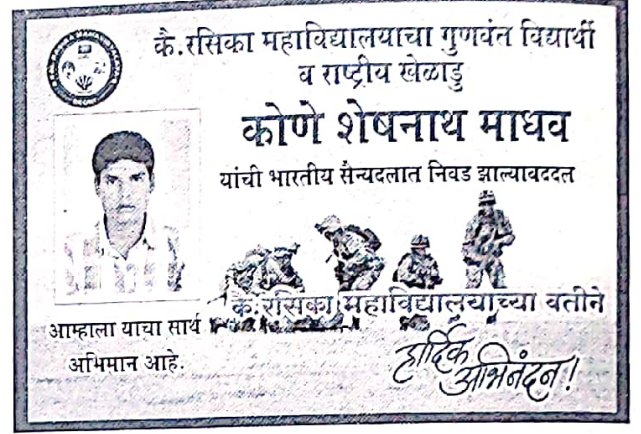 कै.रसिका महाविद्यालयाचा गुणवंत विद्यार्थी
व राष्ट्रीय खेळाडु
कोणे शेषनाथ माधव
यांची भारतीय सैन्यदलात निवड झाल्याबददल
कै.रसिका महाविद्यालयाच्या वतीने
आम्हाला याचा सार्थ
अभिमान आहे.
हार्दिक
अभिनंदन!